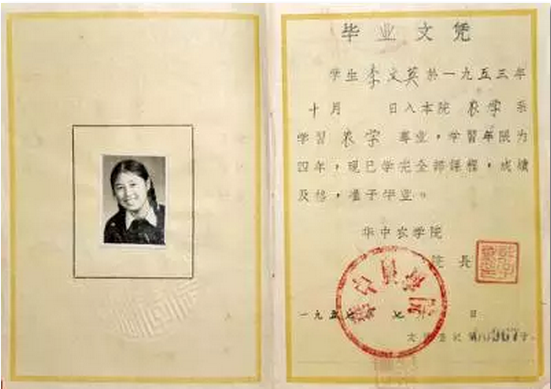 毕业文凭
学生李文英於一九五三年
十月 日入本院农学系
学習农学專业，学習年限为
四年，现已学完全部课程，成绩
及格，准于毕业。
华中农学院
院長
一九五七年七 日
文凭登记第 967号